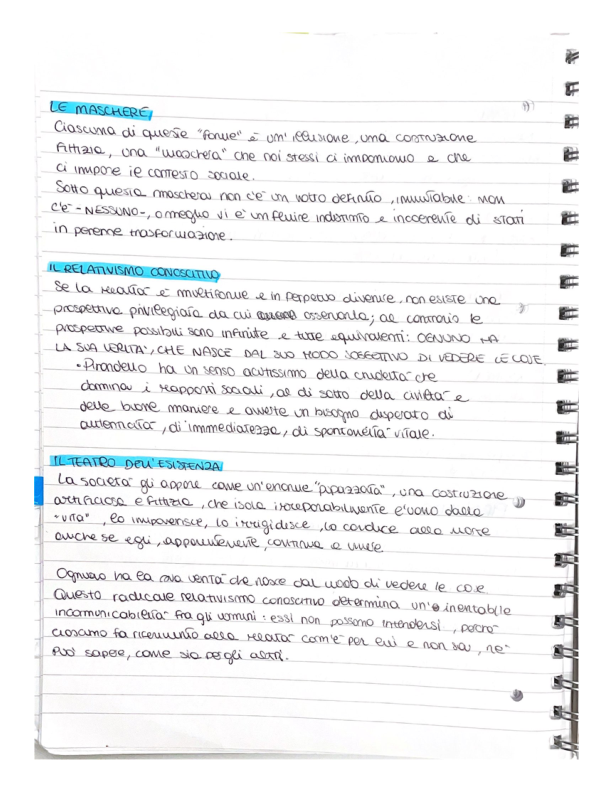 LE MASCHERE
Ciascuna di queste "forme" è un'illusione, una costruzione
fittizia, una "maschera" che noi stessi ci imponiamo e che
ci impone il contesto sociale.
Sotto questa maschera non c'è un volto definito, immutabile: non
c'è - NESSUNO -, o meglio vi è un fluire indistinto e incoerente di stati
in perenne trasformazione.
IL RELATIVISMO CONOSCITIVO
Se la realtà è multiforme e in perpetuo divenire, non esiste una
prospettiva privilegiata da cui osservarla; al contrario le
prospettive possibili sono infinite e tutte equivalenti: OGNUNO HA
LA SUA VERITÀ, CHE NASCE DAL SUO MODO SOGGETTIVO DI VEDERE LE COSE.
• Pirandello ha un senso acutissimo della crudeltà che
domina i rapporti sociali, al di sotto della civiltà e
delle buone maniere e avverte un bisogno disperato di
autenticità, di immediatezza, di spontaneità vitale.
IL TEATRO DELL'ESISTENZA
La società gli appare come un'enorme "pupazzata", una costruzione
artificiosa e fittizia, che isola irreparabilmente l'uomo dalla
"vita", lo impoverisce, lo irrigidisce, lo conduce alla morte
anche se egli, apparentemente, continua a vivere
Ognuno ha la sua verità che nasce dal modo di vedere le cose
Questo radicale relativismo conoscitivo determina un' inevitabile
incomunicabilità fra gli uomini: essi non possono intendersi, perché
ciascuno fa riferimento alla realtà com'è per lui e non sa, né
può sapere, come sia per gli altri.